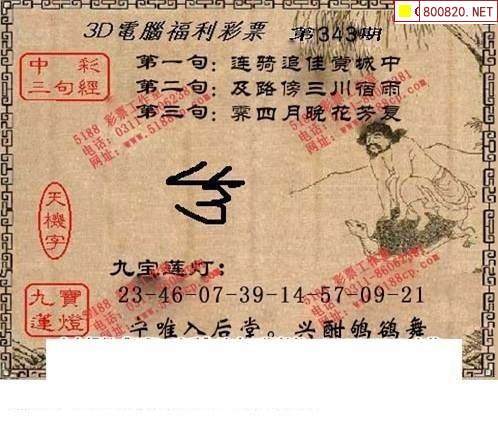 800820.NET
3D電腦福利彩票 第343期
中彩
三句經
第一句：连骑追佳赏城中
第二句：及路傍三川宿雨
第三句：霁四月晚花芳夏
5188 彩票工作室
天機字
九宝莲灯：
23-46-07-39-14-57-09-21
九寶
蓮燈
唯入后堂。兴酣鸲鹆舞